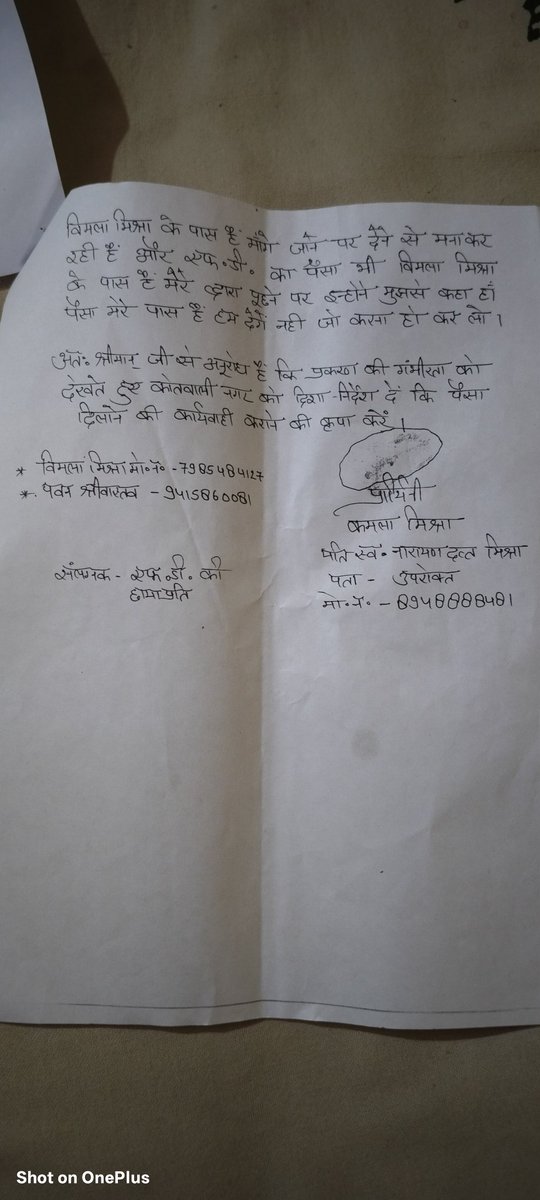 विमला मिश्रा के पास हैं माँगे जाने पर देने से मना कर
रही हैं और एफ.डी. का पैसा भी विमला मिश्रा
के पास हैं मेरे द्वारा पूछने पर इन्होंने मुझसे कहा हाँ
पैसा मेरे पास हैं हम देंगे नही जो करना हो कर लो।
अतः श्रीमान् जी से अनुरोध हैं कि प्रकरण की गंभीरता को
देखते हुए कोतवाली नगर को दिशा-निर्देश दें कि पैसा
दिलाने की कार्यवाही कराने की कृपा करें।
* विमला मिश्रा मो०नं० -7985484127
*. पवन श्रीवास्तव - 9415860081
प्रार्थिनी
कमला मिश्रा
पति स्व० नारायण दत्त मिश्रा
पता - उपरोक्त
मो०नं० - 8948888481
संलग्नक - एफ.डी. की
छायाप्रति
Shot on OnePlus